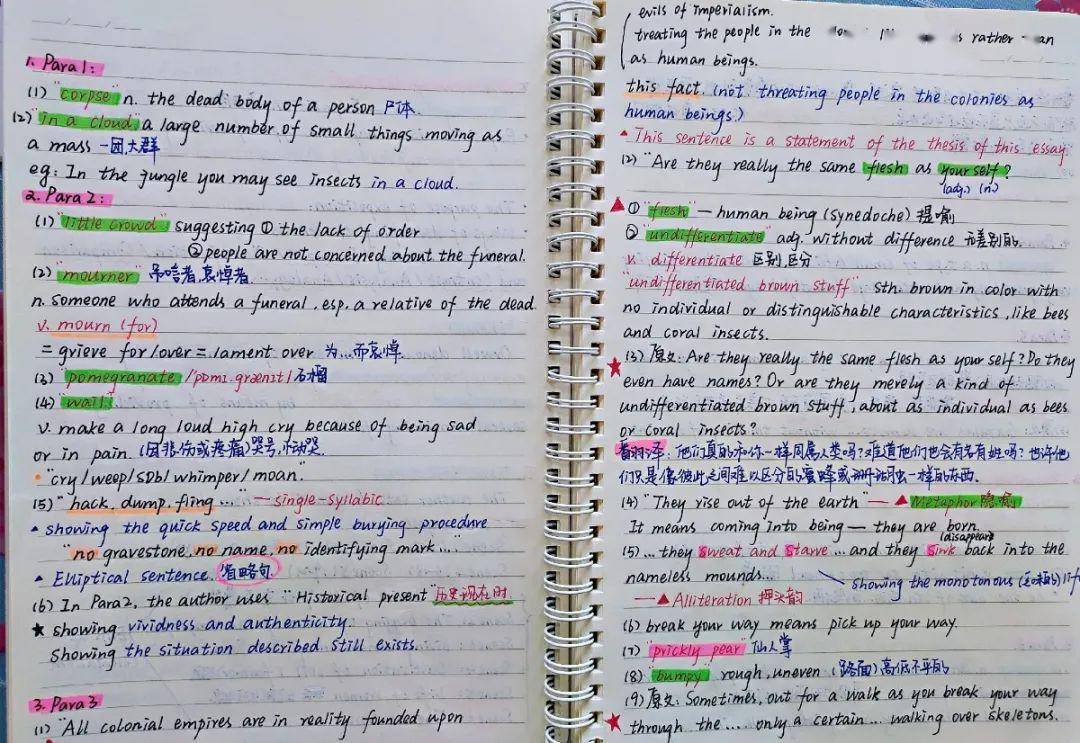 1. Para 1:
(1) "corpse" n. the dead body of a person 尸体
(2) "in a cloud" a large number of small things moving as
a mass 一团,大群
eg: In the jungle you may see insects in a cloud.
2. Para 2:
(1) "little crowd": suggesting ① the lack of order
② people are not concerned about the funeral.
(2) "mourner" 吊唁者,哀悼者
n. someone who attends a funeral, esp. a relative of the dead
v. mourn (for)
= grieve for/over = lament over 为...而哀悼
(3) "pomegranate" /pɒmɪ.grænɪt/ 石榴
(4) "wail"
v. make a long loud high cry because of being sad
or in pain. (因悲伤或疼痛)哭号,恸哭
"cry/weep/sob/whimper/moan."
(5) "hack, dump, fling..." — single-syllabic
showing the quick speed and simple burying procedure
"no gravestone, no name, no identifying mark..."
Elliptical sentence. 省略句
(6) In Para 2, the author uses "Historical present" 历史现在时
★ showing vividness and authenticity.
showing the situation described still exists.
3. Para 3
(1) "All colonial empires are in reality founded upon
evils of imperialism.
treating the people in the s rather an
as human beings.
this fact (not threating people in the colonies as
human beings.)
▲ This sentence is a statement of the thesis of this essay
(2) "Are they really the same flesh as your self?
(adj.) (n.)
▲ ① "flesh" — human being (synedoche) 提喻
② "undifferentiate" adj. without difference 无差别的
v. differentiate 区别,区分
"undifferentiated brown stuff": sth. brown in color with
no individual or distinguishable characteristics, like bees
and coral insects.
★ (3) 原文: Are they really the same flesh as your self? Do they
even have names? Or are they merely a kind of
undifferentiated brown stuff, about as individual as bees
or coral insects?
翻译: 他们真的和你一样同属人类吗?难道他们也会有名有姓吗?也许他
们只是像彼此之间难以区分的蜜蜂或珊瑚虫一样的东西.
(4) "They rise out of the earth" — ▲ Metaphor 隐喻
It means coming into being — they are born.
(disappear)
(5) ... they sweat and starve ... and they sink back into the
nameless mounds...
showing the monotonous
— ▲ Alliteration 押头韵
(6) break your way means pick up your way.
(7) "prickly pear" 仙人掌
(8) "bumpy" rough, uneven (路面)高低不平的
★ (9) 原文: Sometimes, out for a walk as you break your way
through the ... only a certain ... walking over skeletons.